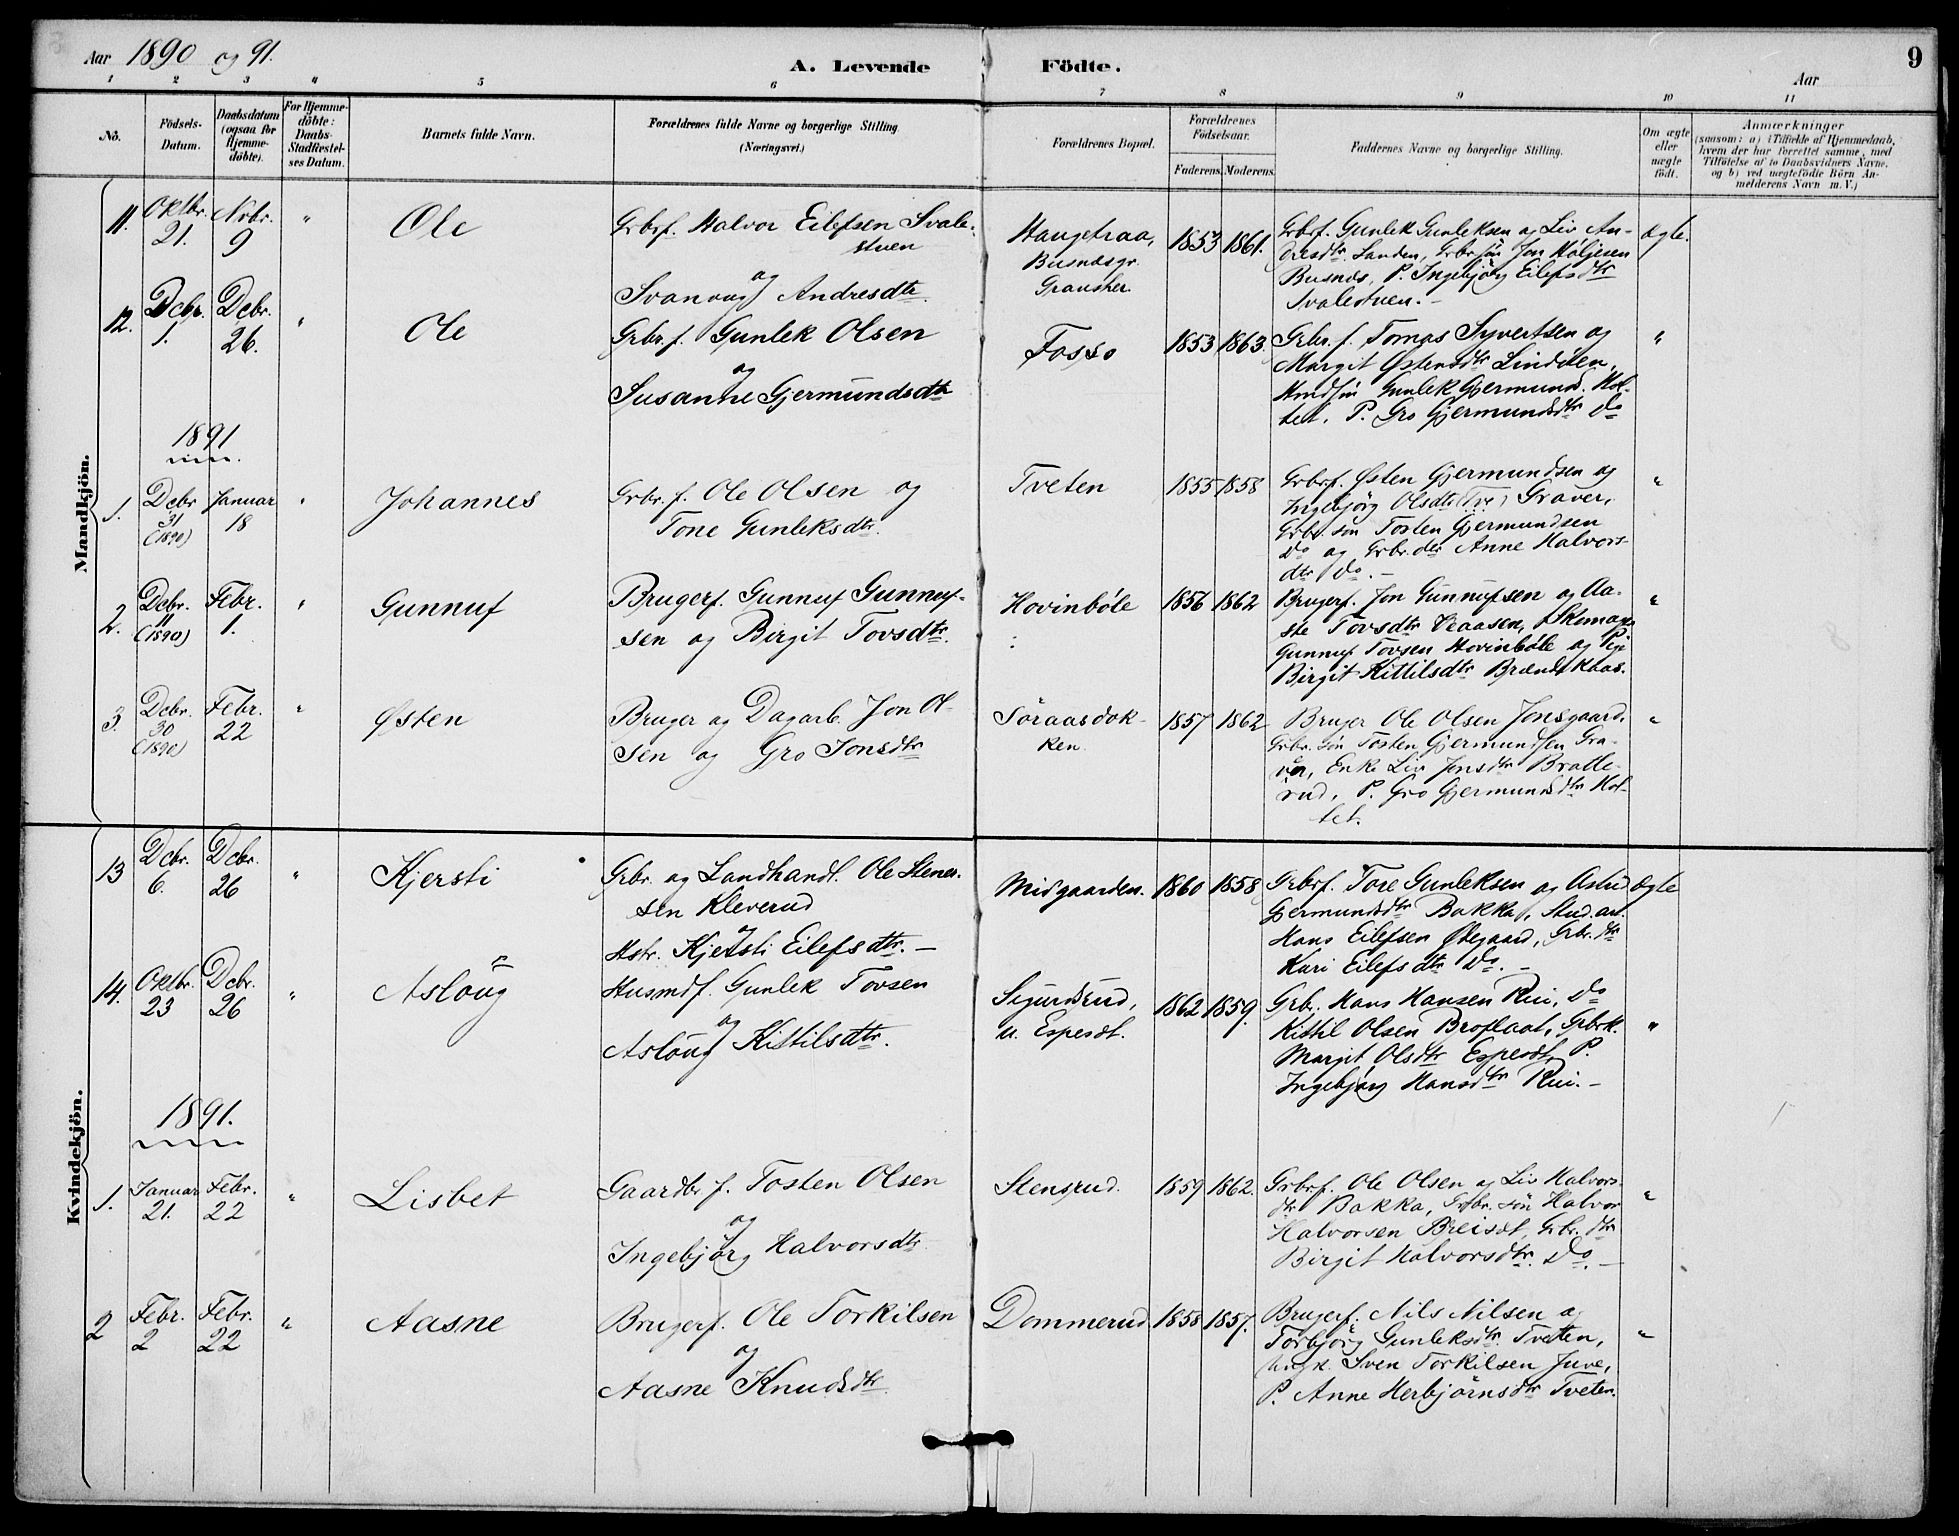 Aar 1890 og 91.
A. Levende Födte.
Aar
9
1 2 3 4 5 6 7 8 9 10 11
No.
Födsels-Datum.
Daabsdatum (ogsaa for Hjemme-döbte).
For Hjemme-döbte: Daabs-Stadfæstel-ses Datum.
Barnets fulde Navn.
Forældrenes fulde Navne og borgerlige Stilling (Næringsvei.)
Forældrenes Bopæl.
Forældrenes Födselsaar.
Faderens. Moderens.
Faddernes Navne og borgerlige Stilling.
Om ægte eller uægte födt.
Anmærkninger
(saasom: a) i Tilfælde af Hjemmedaab,
hvem der har forrettet samme, med
Tilföielse af to Daabsvidners Navne,
og b) ved uægtefödte Börn An-
melderens Navn m. V.)
Mandkjön.
11. Oktbr. 21. Novbr. 9 " Ole
Grbrf. Halvor Eilefsen Svale-
stuen
og
Svanaug Andresdtr.
Haugetraa,
Busnæsgr.
Gransher.
1853 1861.
Grbrf. Gunlek Gunleksen og Liv An-
dresdtr. Sanden, Grbr.sön Jon Höljesen
Busnæs, P. Ingebjörg Eilefsdtr
Svalestuen. –
Ægte.
12. Debr. 1. Debr. 26. " Ole
Grbr.f. Gunlek Olsen
og
Susanne Gjermundsdtr
Fosso
1853 1863.
Grbr.f. Tomas Syvertsen og
Margit Østensdtr Lindsten,
Gunlek Gjermunds. Hol-
tet, P. Gro Gjermundsdtr Do
"
1891
1. Debr 31 (1890) Januar 18 " Johannes
Grbr.f. Ole Olsen og
Tone Gunleksdtr.
Tveten
1855 1858
Grbrf. Østen Gjermundsen og
Ingebjörg Olsdtr (Tve) Graver,
Grbr.sön Tosten Gjermundsen
Do og Grbr.dtr Anne Halvors-
dtr Do. –
"
2. Debr. 11 (1890) Febr. 1. " Gunnuf
Brugerf. Gunnuf Gunnuf-
sen og Birgit Tovsdtr.
Hovinböle
1856 1862
Brugerf. Jon Gunnufsen og Aa-
ste Tovsdtr Veaasen,
Gunnuf Tovsen Hovinböle og Pige
Birgit Kittilsdtr Brændtkaas.
"
3. Debr. 30 (1890) Febr. 22 " Østen
Bruger og Dagarb. Jon Ol-
sen og Gro Jonsdtr
Söraasdok-
ken
1857 1862
Bruger Ole Olsen Jonsgaard,
Grbr.sön Tosten Gjermundsen Gra-
ver, Enke Liv Jonsdtr Bratte-
rud, P. Gro Gjermundsdtr Hol-
tet.
"
Kvindekjön.
13 Debr. 6. Debr. 26 " Kjersti
Grbr. og Landhandl. Ole Stenes-
sen Kleverud
og
Hstr. Kjersti Eilefsdtr. –
Midgaarden.
1860 1858
Grbrf. Tore Gunleksen og Astrid
Gjermundsdtr Bakka, Stud. art.
Hans Eilefsen Øiegaard, Grbr.dtr
Kari Eilefsdtr Do. –
Ægte
14. Oktbr. 23 Debr. 26 " Aslöug
Husmdf. Gunlek Tovsen
og
Aslöug Kittilsdtr.
Sigurdsrud,
u. Espesdt.
1862 1859.
Grbr. Hans Hansen Rui, Do
Kittil Olsen Broflaat, Grbrk.
Margit Olsdtr Espesdt, P.
Ingebjörg Hansdtr Rui. –
"
1891.
1. Januar 21. Febr. 22 " Lisbet
Gaardbr.f. Tosten Olsen
og
Ingebjörg Halvorsdtr.
Stensrud.
1859 1862.
Grbrf. Ole Olsen og Liv Halvors-
dtr Bakka, Grbr.sön Halvor
Halvorsen Breisdt, Grbr.dtr
Birgit Halvorsdtr. Do. –
"
2 Febr. 2 Febr. 22 " Aasne
Brugerf. Ole Torkilsen
og
Aasne Knudsdtr.
Dommerud
1858 1857.
Brugerf. Nils Nilsen og
Torbjörg Gunleksdtr. Tveten,
Ungk. Sven Torkilsen Juve,
P. Anne Herbjörnsdtr Tveten.
"